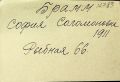 Брамм
София Соломоновна
1911
Рыбная 66.